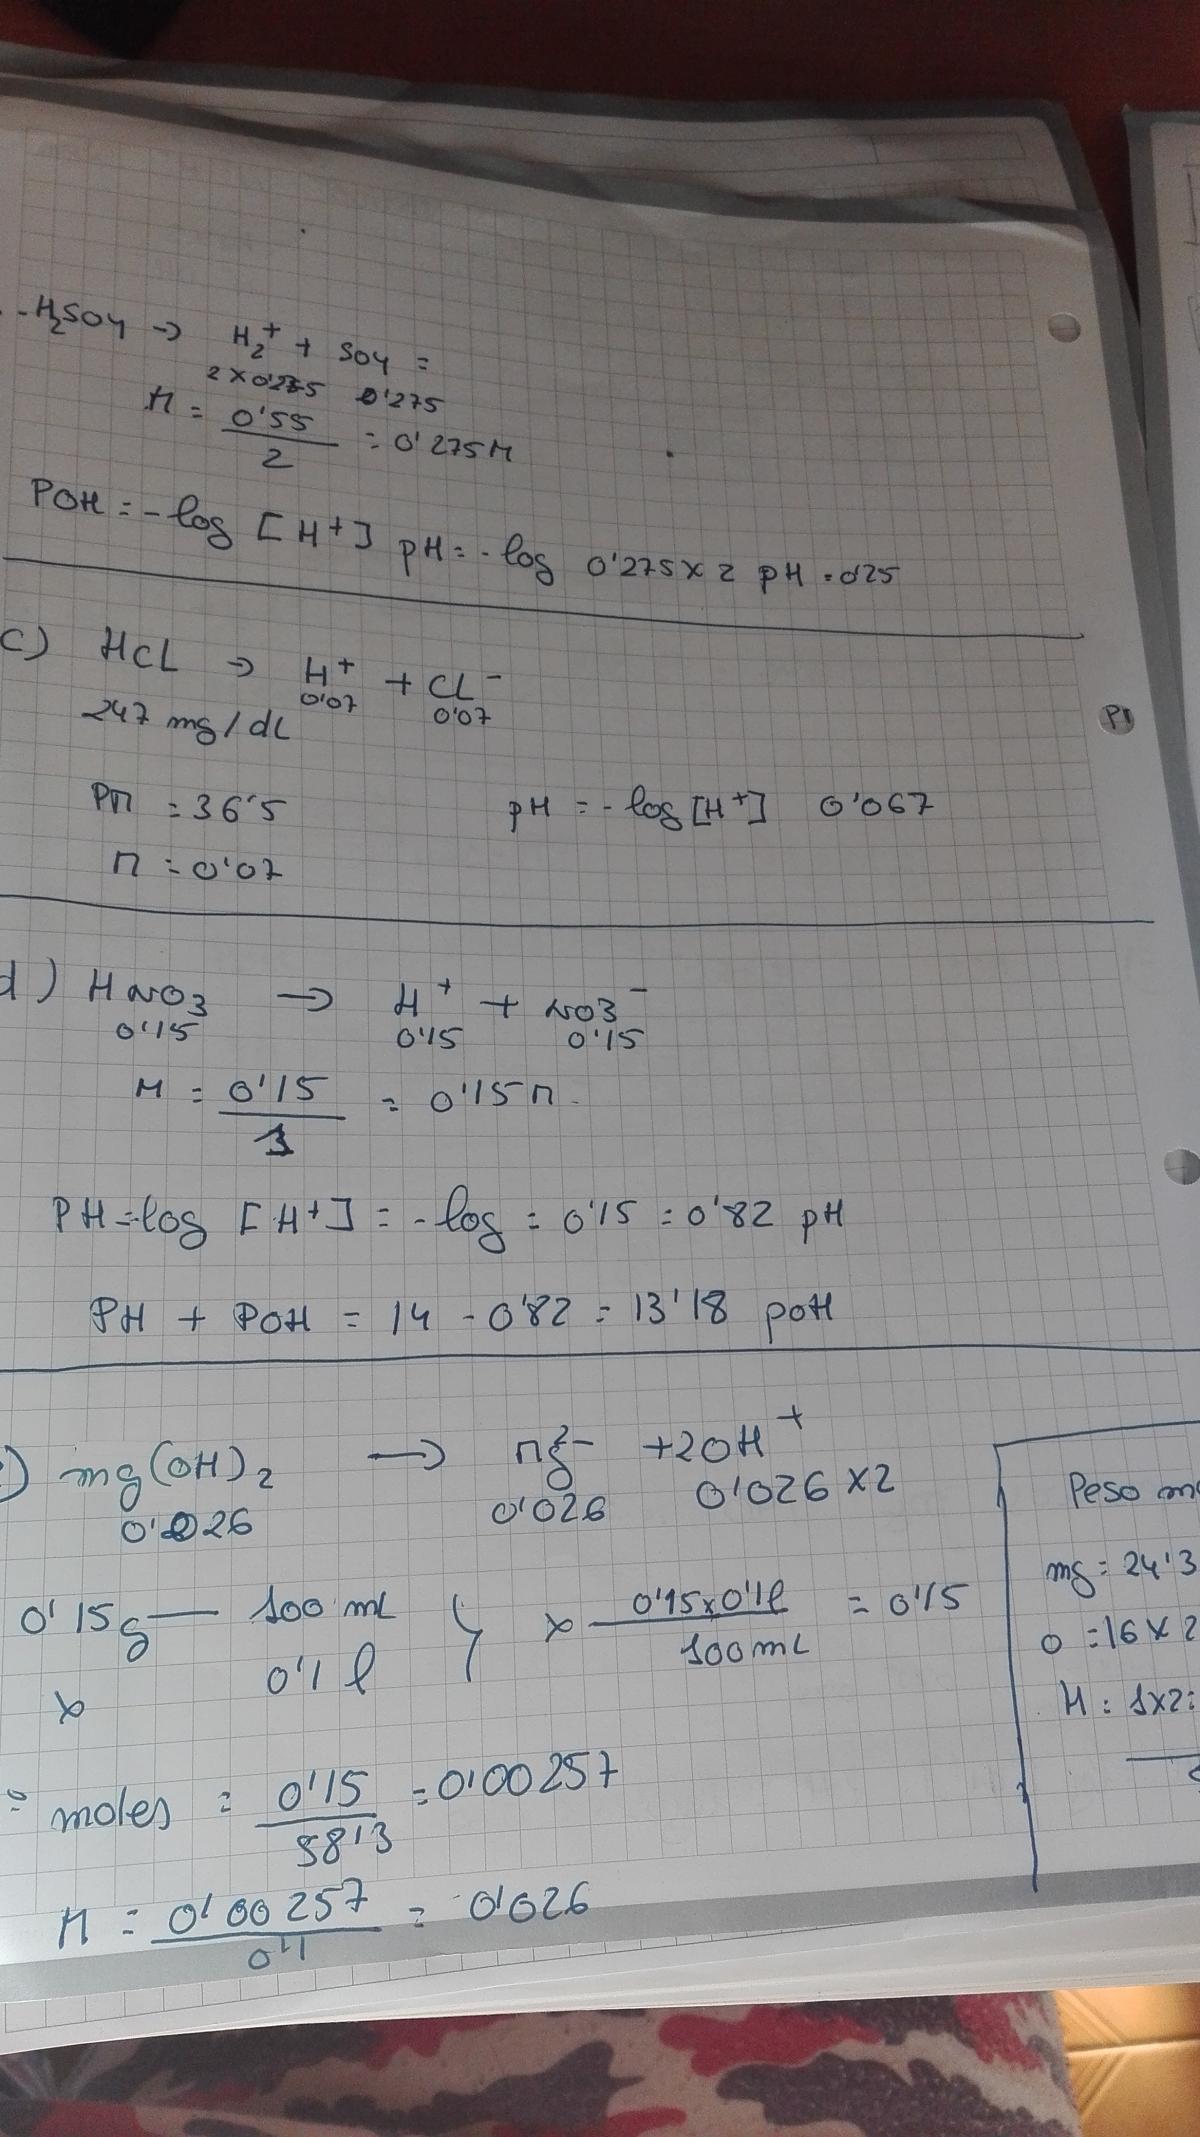 - H2SO4 → H2+ + SO4 =
2 x 0'275 0'275
M = 0'55 / 2 = 0'275 M
POH = -log [H+] pH = -log 0'275 x 2 pH = 0'25
c) HCL → H+ + CL-
0'07 0'07
247 mg/dL
PM = 36'5 pH = -log [H+] 0'067
M = 0'07
d) HNO3 → H+ + NO3-
0'15 0'15 0'15
M = 0'15 / 1 = 0'15 M
PH = -log [H+] = -log = 0'15 = 0'82 pH
PH + POH = 14 - 0'82 = 13'18 poH
) mg(OH)2 → Mg2- + 2OH+
0'026 0'026 0'026 x 2
0'15g — 100 mL } x 0'15 x 0'1 l / 100 mL = 0'15
x 0'1 l
= moles = 0'15 / 58'3 = 0'00257
M = 0'00257 / 0'1 = 0'026
Peso m
mg = 24'3
O = 16 x 2
H = 1x2 =